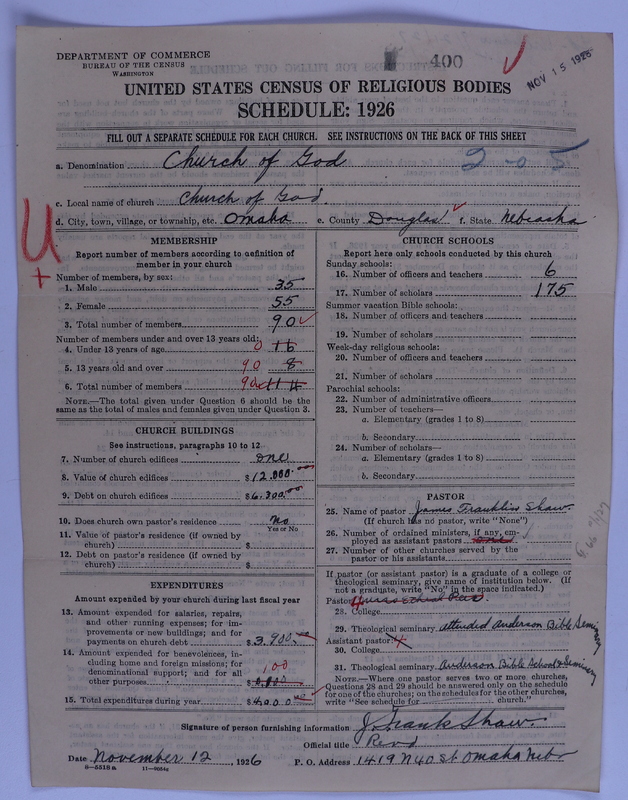 DEPARTMENT OF COMMERCE
BUREAU OF THE CENSUS
WASHINGTON
400
NOV 15 1926
UNITED STATES CENSUS OF RELIGIOUS BODIES
SCHEDULE: 1926
FILL OUT A SEPARATE SCHEDULE FOR EACH CHURCH. SEE INSTRUCTIONS ON THE BACK OF THIS SHEET
a. Denomination Church of God 2-0-5
c. Local name of church Church of God.
d. City, town, village, or township, etc. Omaha e. County Douglas f. State Nebraska
U
+
MEMBERSHIP
Report number of members according to definition of
member in your church
Number of members, by sex:
1. Male 35
2. Female 55
3. Total number of members 90
Number of members under and over 13 years old:
4. Under 13 years of age 0 16
5. 13 years old and over 90 8
6. Total number of members 90
NOTE.—The total given under Question 6 should be
same as the total of males and females given under Question 3.
CHURCH BUILDINGS
See instructions, paragraphs 10 to 12
7. Number of church edifices one
8. Value of church edifices $12.000.00
9. Debt on church edifices $6.300.00
10. Does church own pastor's residence No
Yes or No
11. Value of pastor's residence (if owned by
church) $
12. Debt on pastor's residence (if owned by
church) $
EXPENDITURES
Amount expended by your church during last fiscal year
13. Amount expended for salaries, repairs,
and other running expenses; for im-
provements or new buildings; and for
payments on church debt $3.900.
14. Amount expended for benevolences, in-
cluding home and foreign missions; for
denominational support; and for all 100
other purposes $
15. Total expenditures during year $4000.00
CHURCH SCHOOLS
Report here only schools conducted by this church
Sunday schools:
16. Number of officers and teachers 6
17. Number of scholars 175
Summer vacation Bible schools:
18. Number of officers and teachers
19. Number of scholars
Week-day religious schools:
20. Number of officers and teachers
21. Number of scholars
Parochial schools:
22. Number of administrative officers
23. Number of teachers—
a. Elementary (grades 1 to 8)
b. Secondary
24. Number of scholars—
a. Elementary (grades 1 to 8)
b. Secondary
PASTOR
25. Name of pastor James Franklin Shaw
(If church has no pastor, write "None")
26. Number of ordained ministers, if any, em-
ployed as assistant pastors
27. Number of other churches served by the
pastor or his assistants
If pastor (or assistant pastor) is a graduate of a college or
theological seminary, give name of institution below. (If
not a graduate, write "No" in the space indicated.)
Pastor:
28. College
29. Theological seminary attended Anderson Bible Seminary
Assistant pastor:
30. College
31. Theological seminary Anderson Bible School & Seminary
NOTE.—Where one pastor serves two or more churches,
Questions 28 and 29 should be answered only on the schedule
for one of the churches; on the schedules for the other churches,
write "See schedule for church."
Signature of person furnishing information J. Frank Shaw
Official title Revd
Date November 12, 1926 P. O. Address 1419 N 40 St Omaha Neb
8—5518a 11—9084g